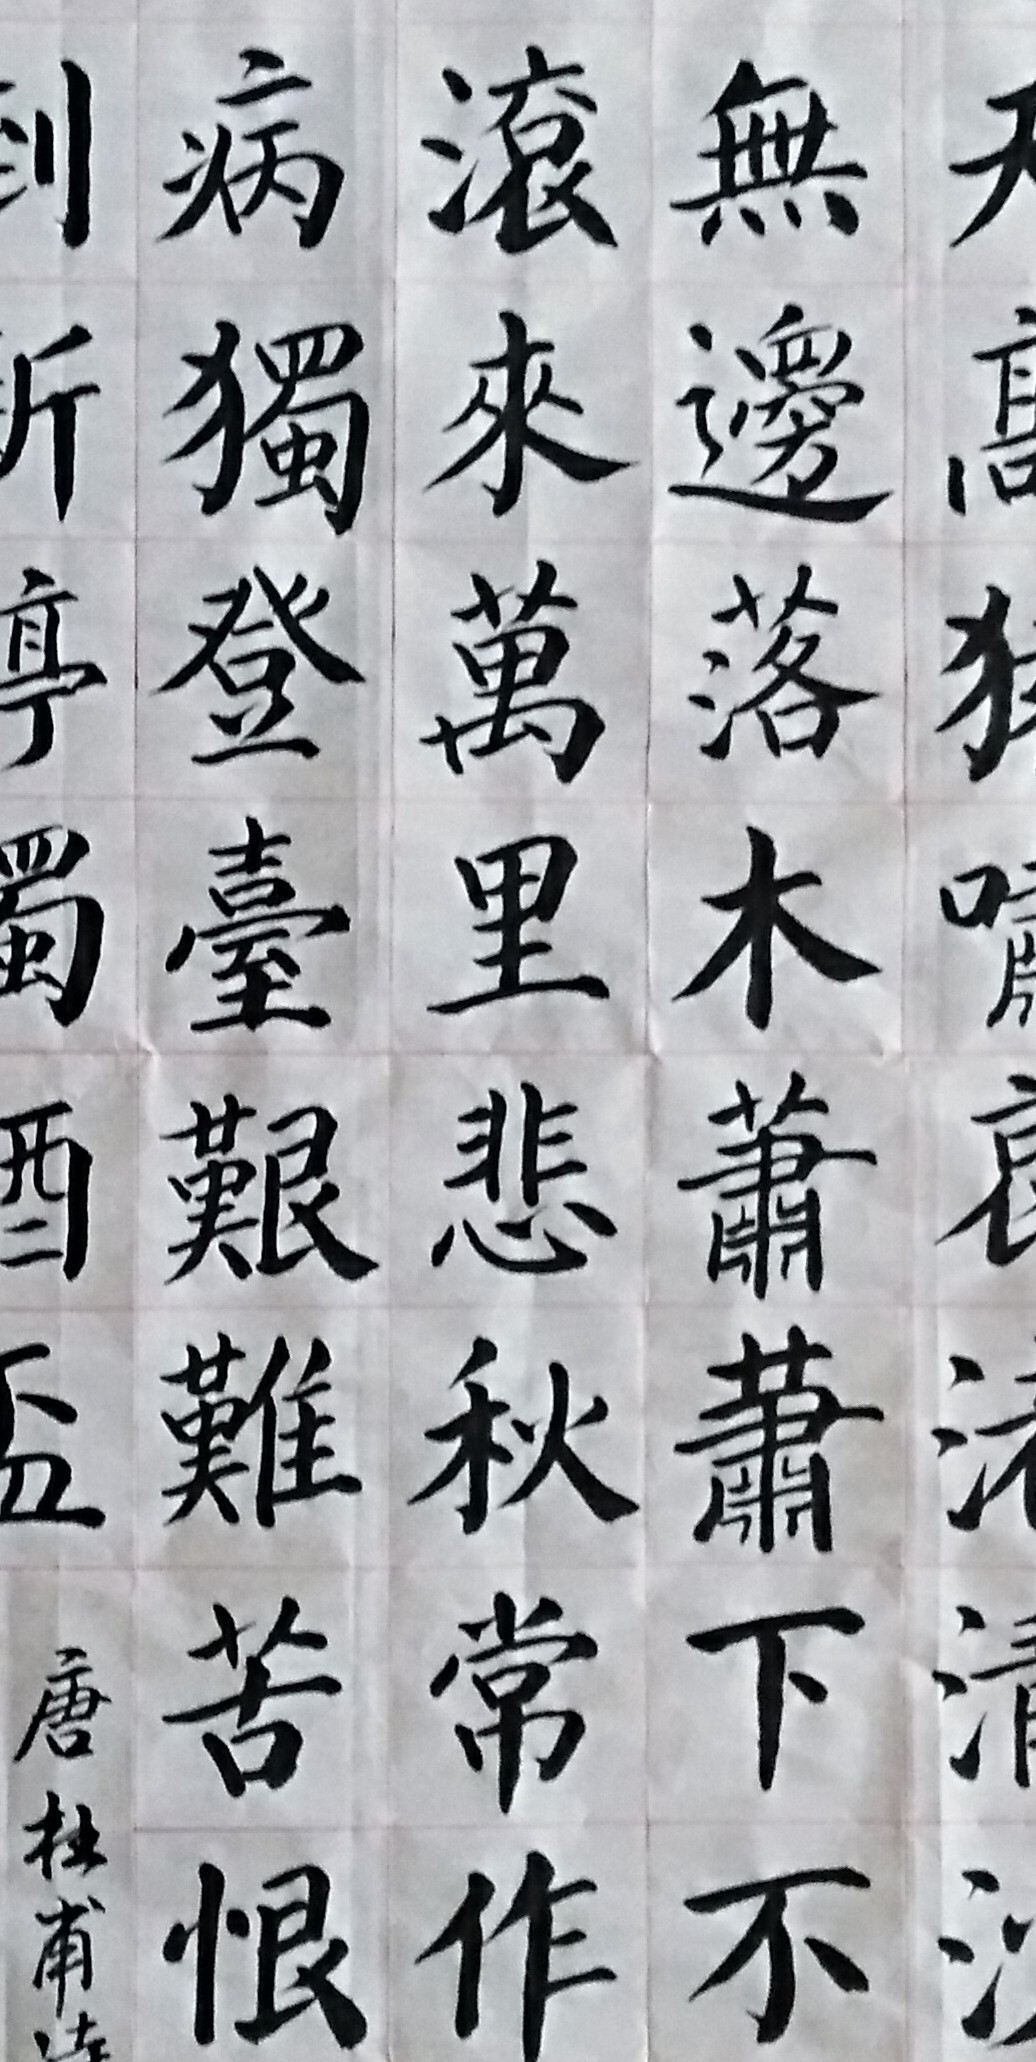 天高猿嘯哀渚清沙
無邊落木蕭蕭下不
滾來萬里悲秋常作
病獨登臺艱難苦恨
倒新亭濁酒盃
唐杜甫詩